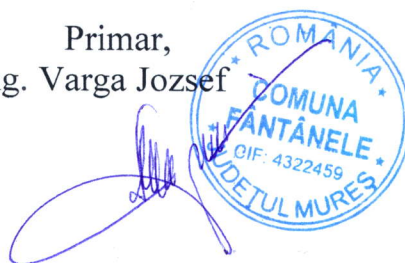 Primar,
g. Varga Jozsef
ROMÂNIA
COMUNA
FÂNTÂNELE
CIF: 4322459
JUDEŢUL MUREŞ